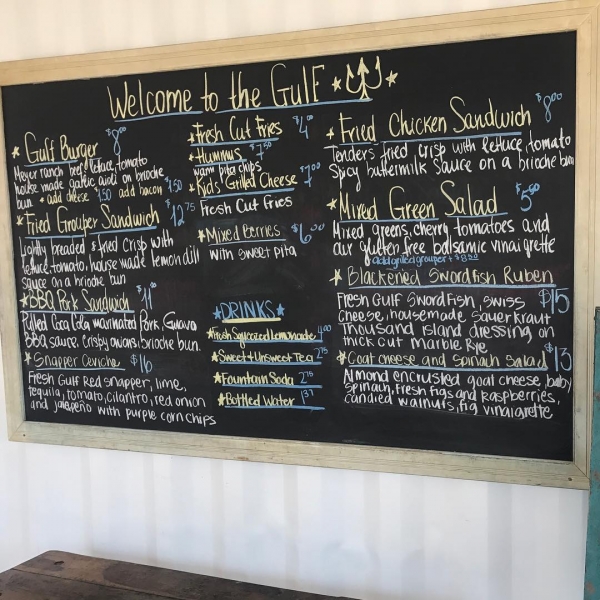 Welcome to the Gulf
Gulf Burger $8.00
Meyer ranch beef, lettuce, tomato
house made garlic aioli on brioche
bun * add cheese $.50 add bacon $1.50
Fried Grouper Sandwich $12.75
Lightly breaded & fried crisp with
lettuce, tomato, house made lemon dill
sauce on a brioche bun
BBQ Pork Sandwich $11.00
Pulled Coca Cola marinated Pork, Guava
BBQ sauce, crispy onions, brioche bun.
Snapper Ceviche $16
Fresh Gulf Red snapper, lime,
tequila, tomato, cilantro, red onion
and jalapeño with purple corn chips
Fresh Cut Fries $4.00
Hummus $7.50
warm pita chips
Kids Grilled Cheese $7.00
Fresh Cut Fries
Mixed Berries $6.50
with sweet pita
DRINKS
Fresh Squeezed Lemonade 4.00
Sweet + Unsweet Tea 2.75
Fountain Soda 2.75
Bottled Water 1.37
Fried Chicken Sandwich $8.00
Tenders fried crisp with lettuce, tomato
Spicy buttermilk sauce on a brioche bun
Mixed Green Salad $5.50
Mixed greens, cherry tomatoes and
our gluten free balsamic vinaigrette
add grilled grouper + $8.50
Blackened Swordfish Ruben
Fresh Gulf Swordfish, swiss $15
cheese, housemade sauerkraut
Thousand island dressing on
thick cut Marble Rye.
Goat cheese and spinach Salad $13
Almond encrusted goat cheese, baby
spinach, fresh figs and raspberries,
candied walnuts, fig vinaigrette